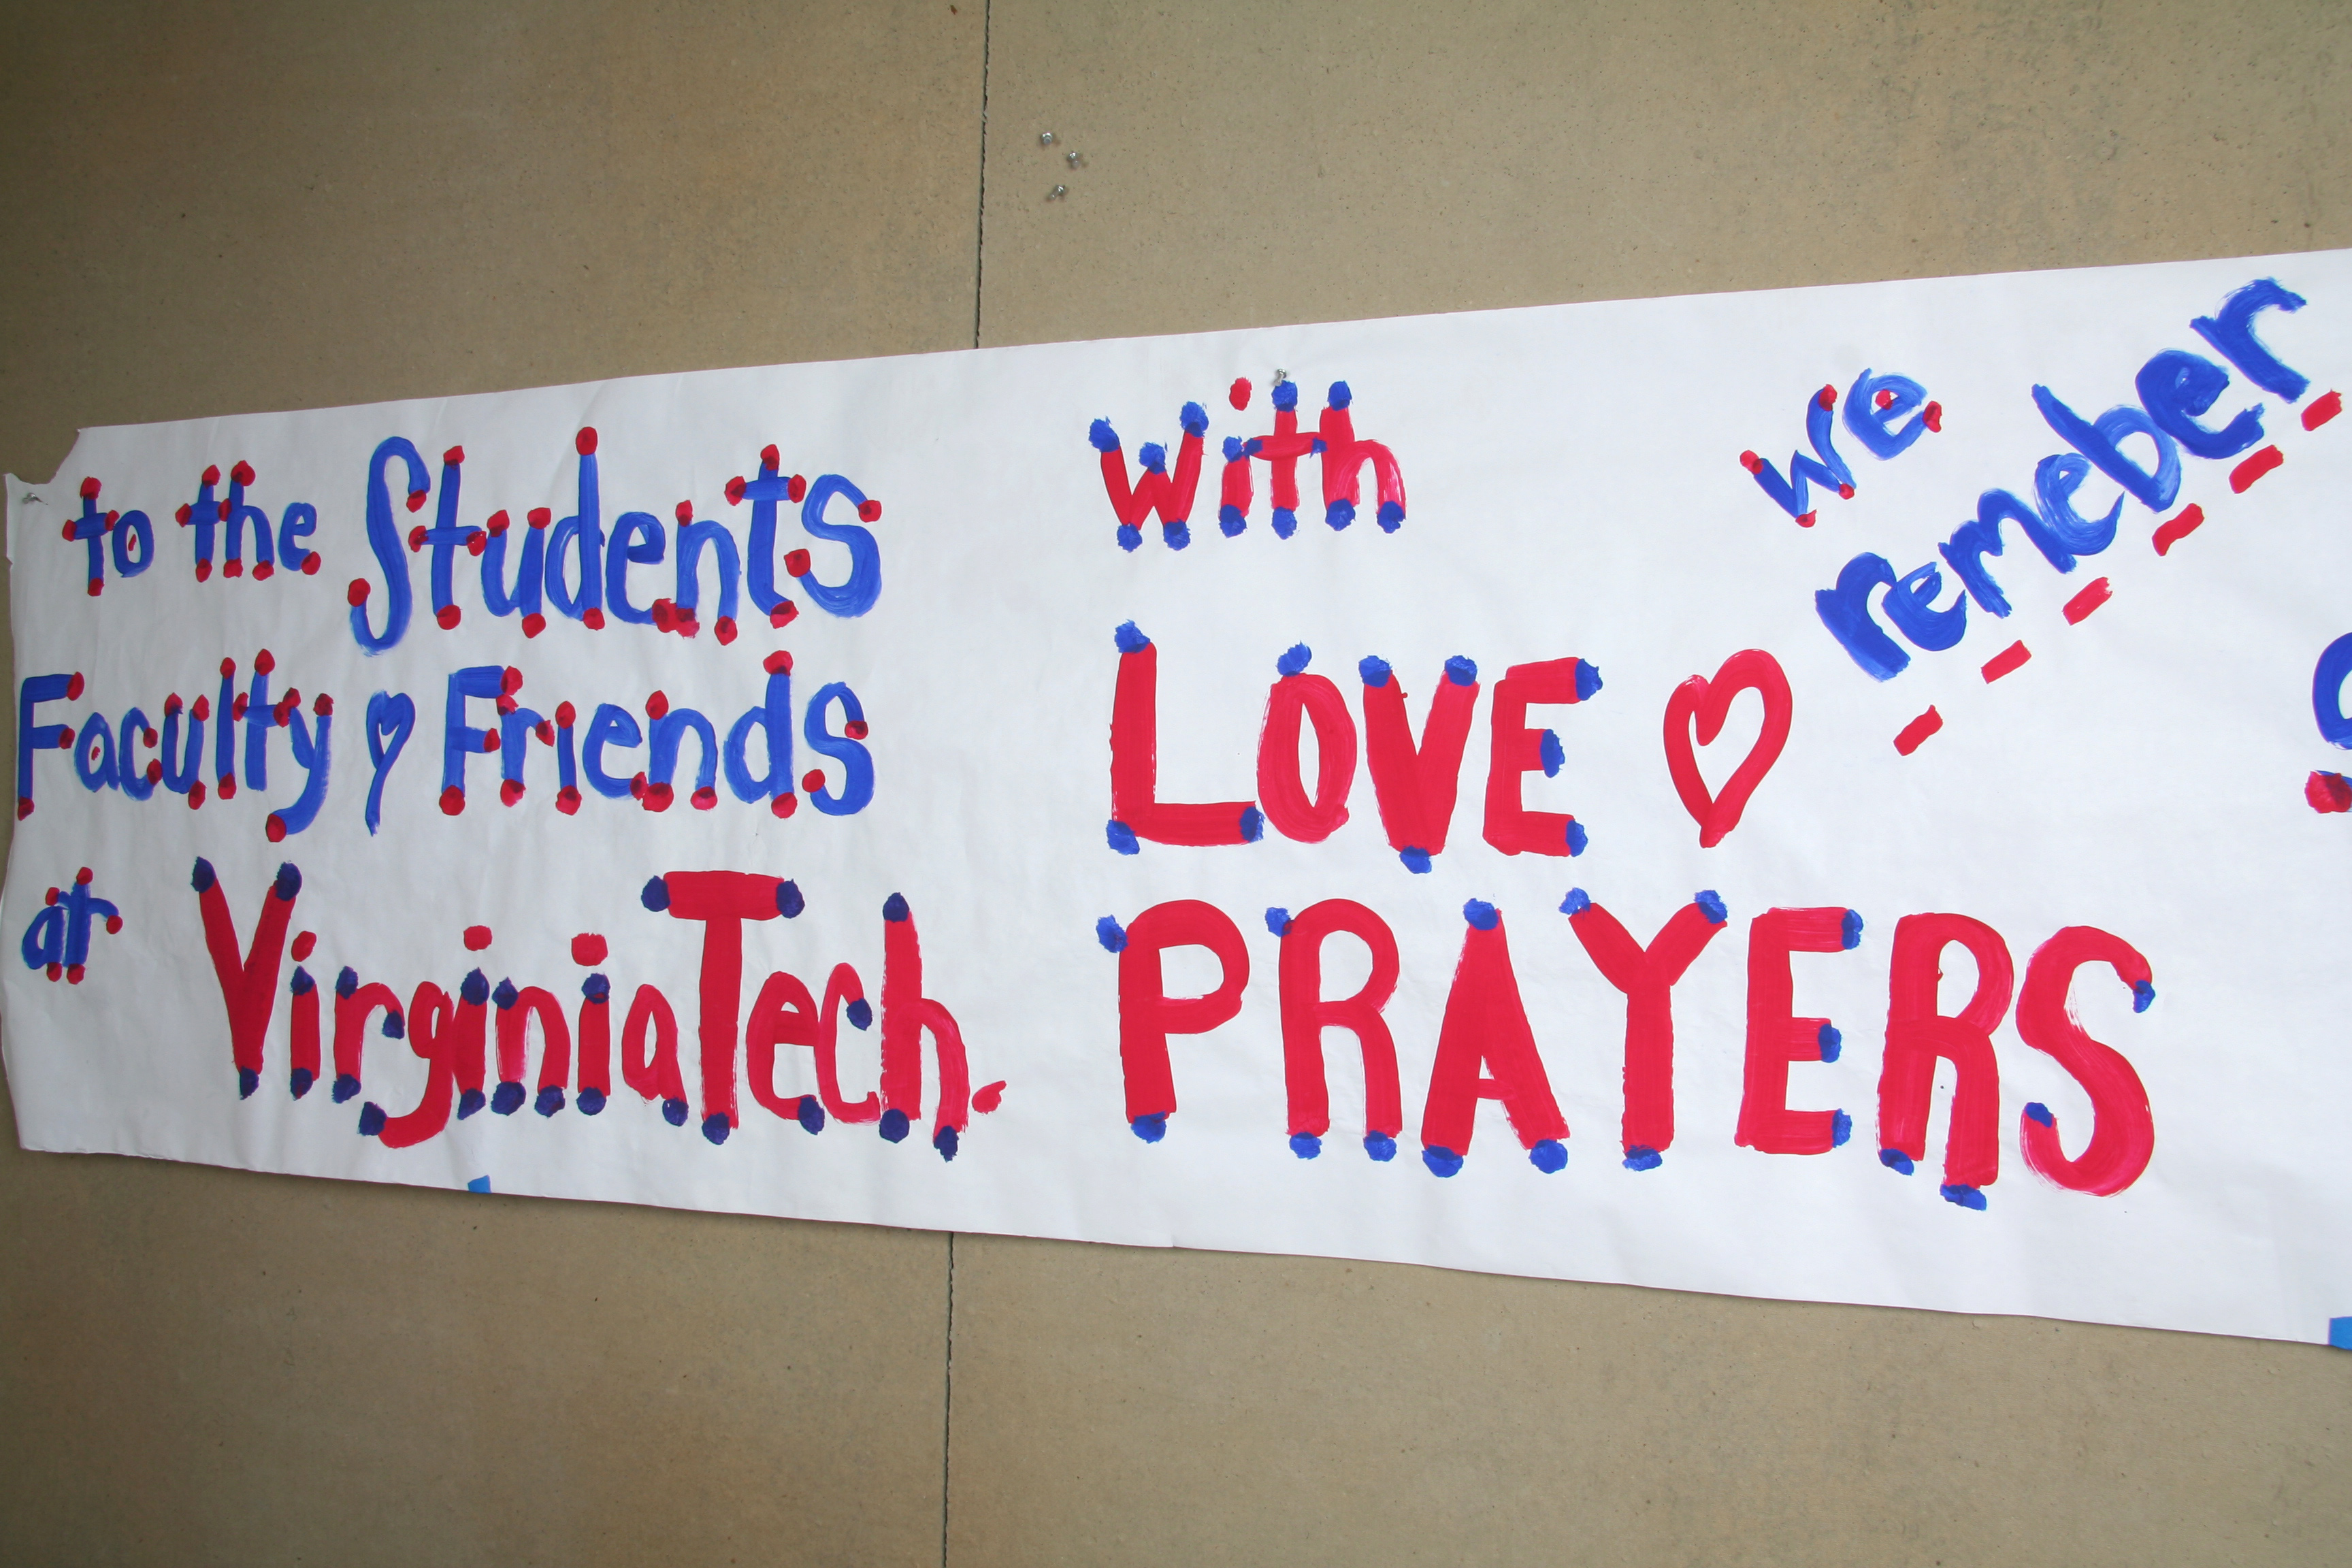 to the Students
Faculty Friends
at Virginia Tech.
with
LOVE
PRAYERS
we
remeber